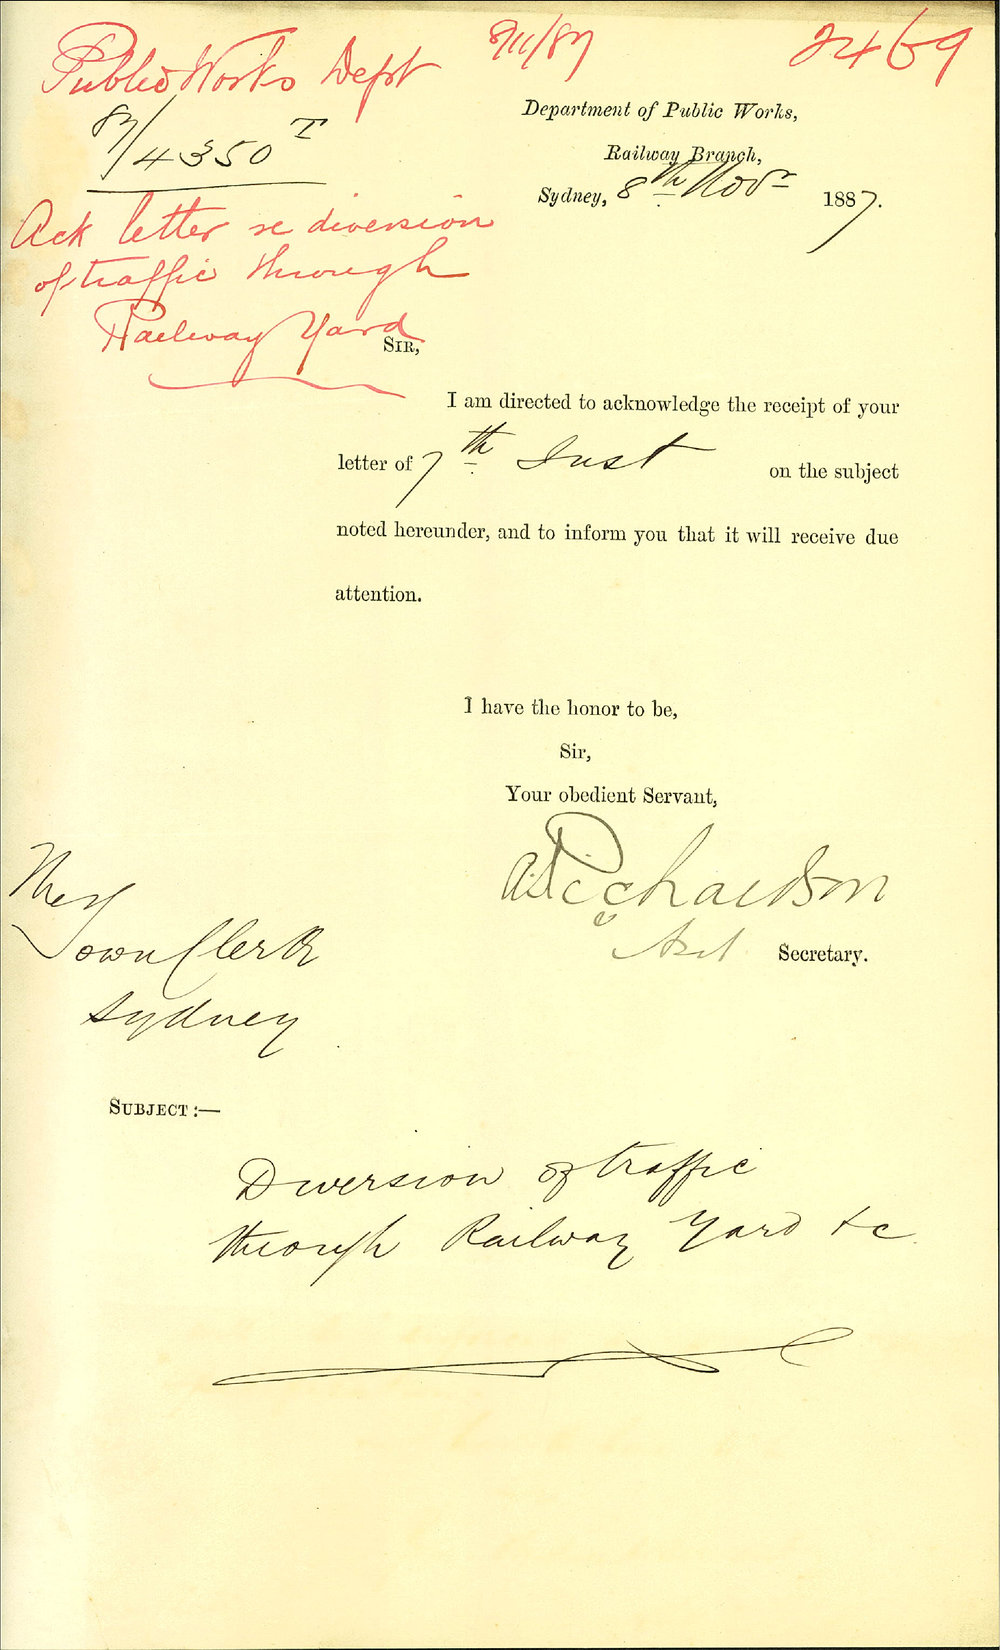 Public Works Dept
8/11/87
2469
87/4350 T
Department of Public Works,
Railway Branch,
Sydney, 8th Novr 1887.
Ack letter re diversion
of traffic through
Railway Yard
SIR,
I am directed to acknowledge the receipt of your
letter of 7th Inst on the subject
noted hereunder, and to inform you that it will receive due
attention.
I have the honor to be,
Sir,
Your obedient Servant,
A. Richardson
Secretary.
The
Town Clerk
Sydney
SUBJECT:—
Diversion of traffic
through Railway Yard &c